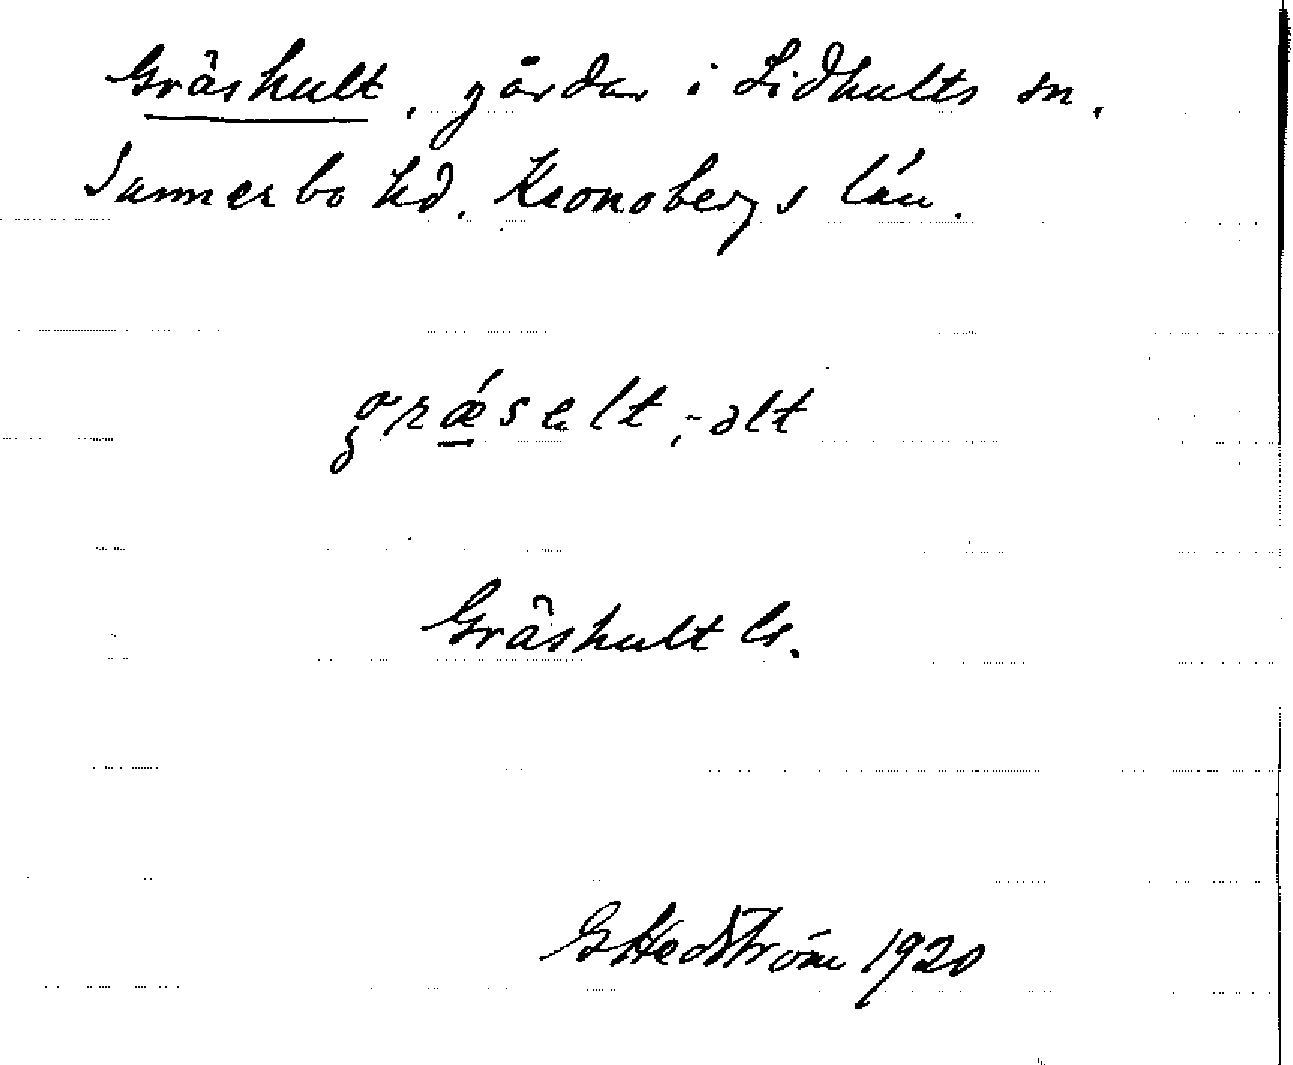 Gråshult, gårdar i Lidhults sn.
Sunnerbo hd. Kronobergs län.
grǽselt, -ält
Gråshult Gs.
G Hedström 1920